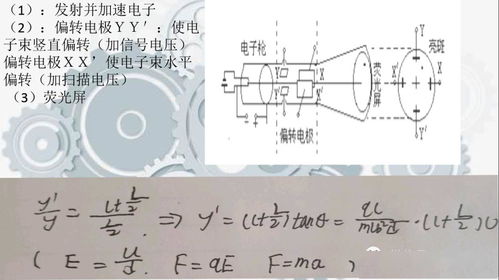 （1）：发射并加速电子
（2）：偏转电极ＹＹ′：使电
子束竖直偏转（加信号电压）
偏转电极ＸＸ′使电子束水平
偏转（加扫描电压）
（3）荧光屏
电子枪
偏转电极
荧光屏
亮斑
Y
Y
X
X
X′
X
Y′
Y′
- +
y'/y = (l+L/2)/(L/2) ⇒ y' = (l+L/2)tanθ = qL/(mv₀²d)·(l+L/2)U
( E = U/d. F=qE F=ma )